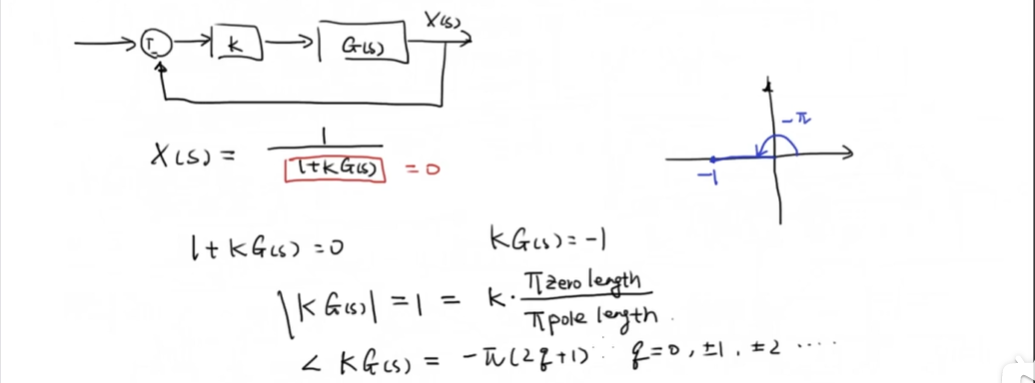 X(s)
k
G(s)
-π
-1
X(s) = 1 / 1+kG(s) = 0
1+kG(s) = 0
kG(s) = -1
|kG(s)| = 1 = k · π zero length / π pole length
∠ kG(s) = -π(2q+1) q=0, ±1, ±2 ....